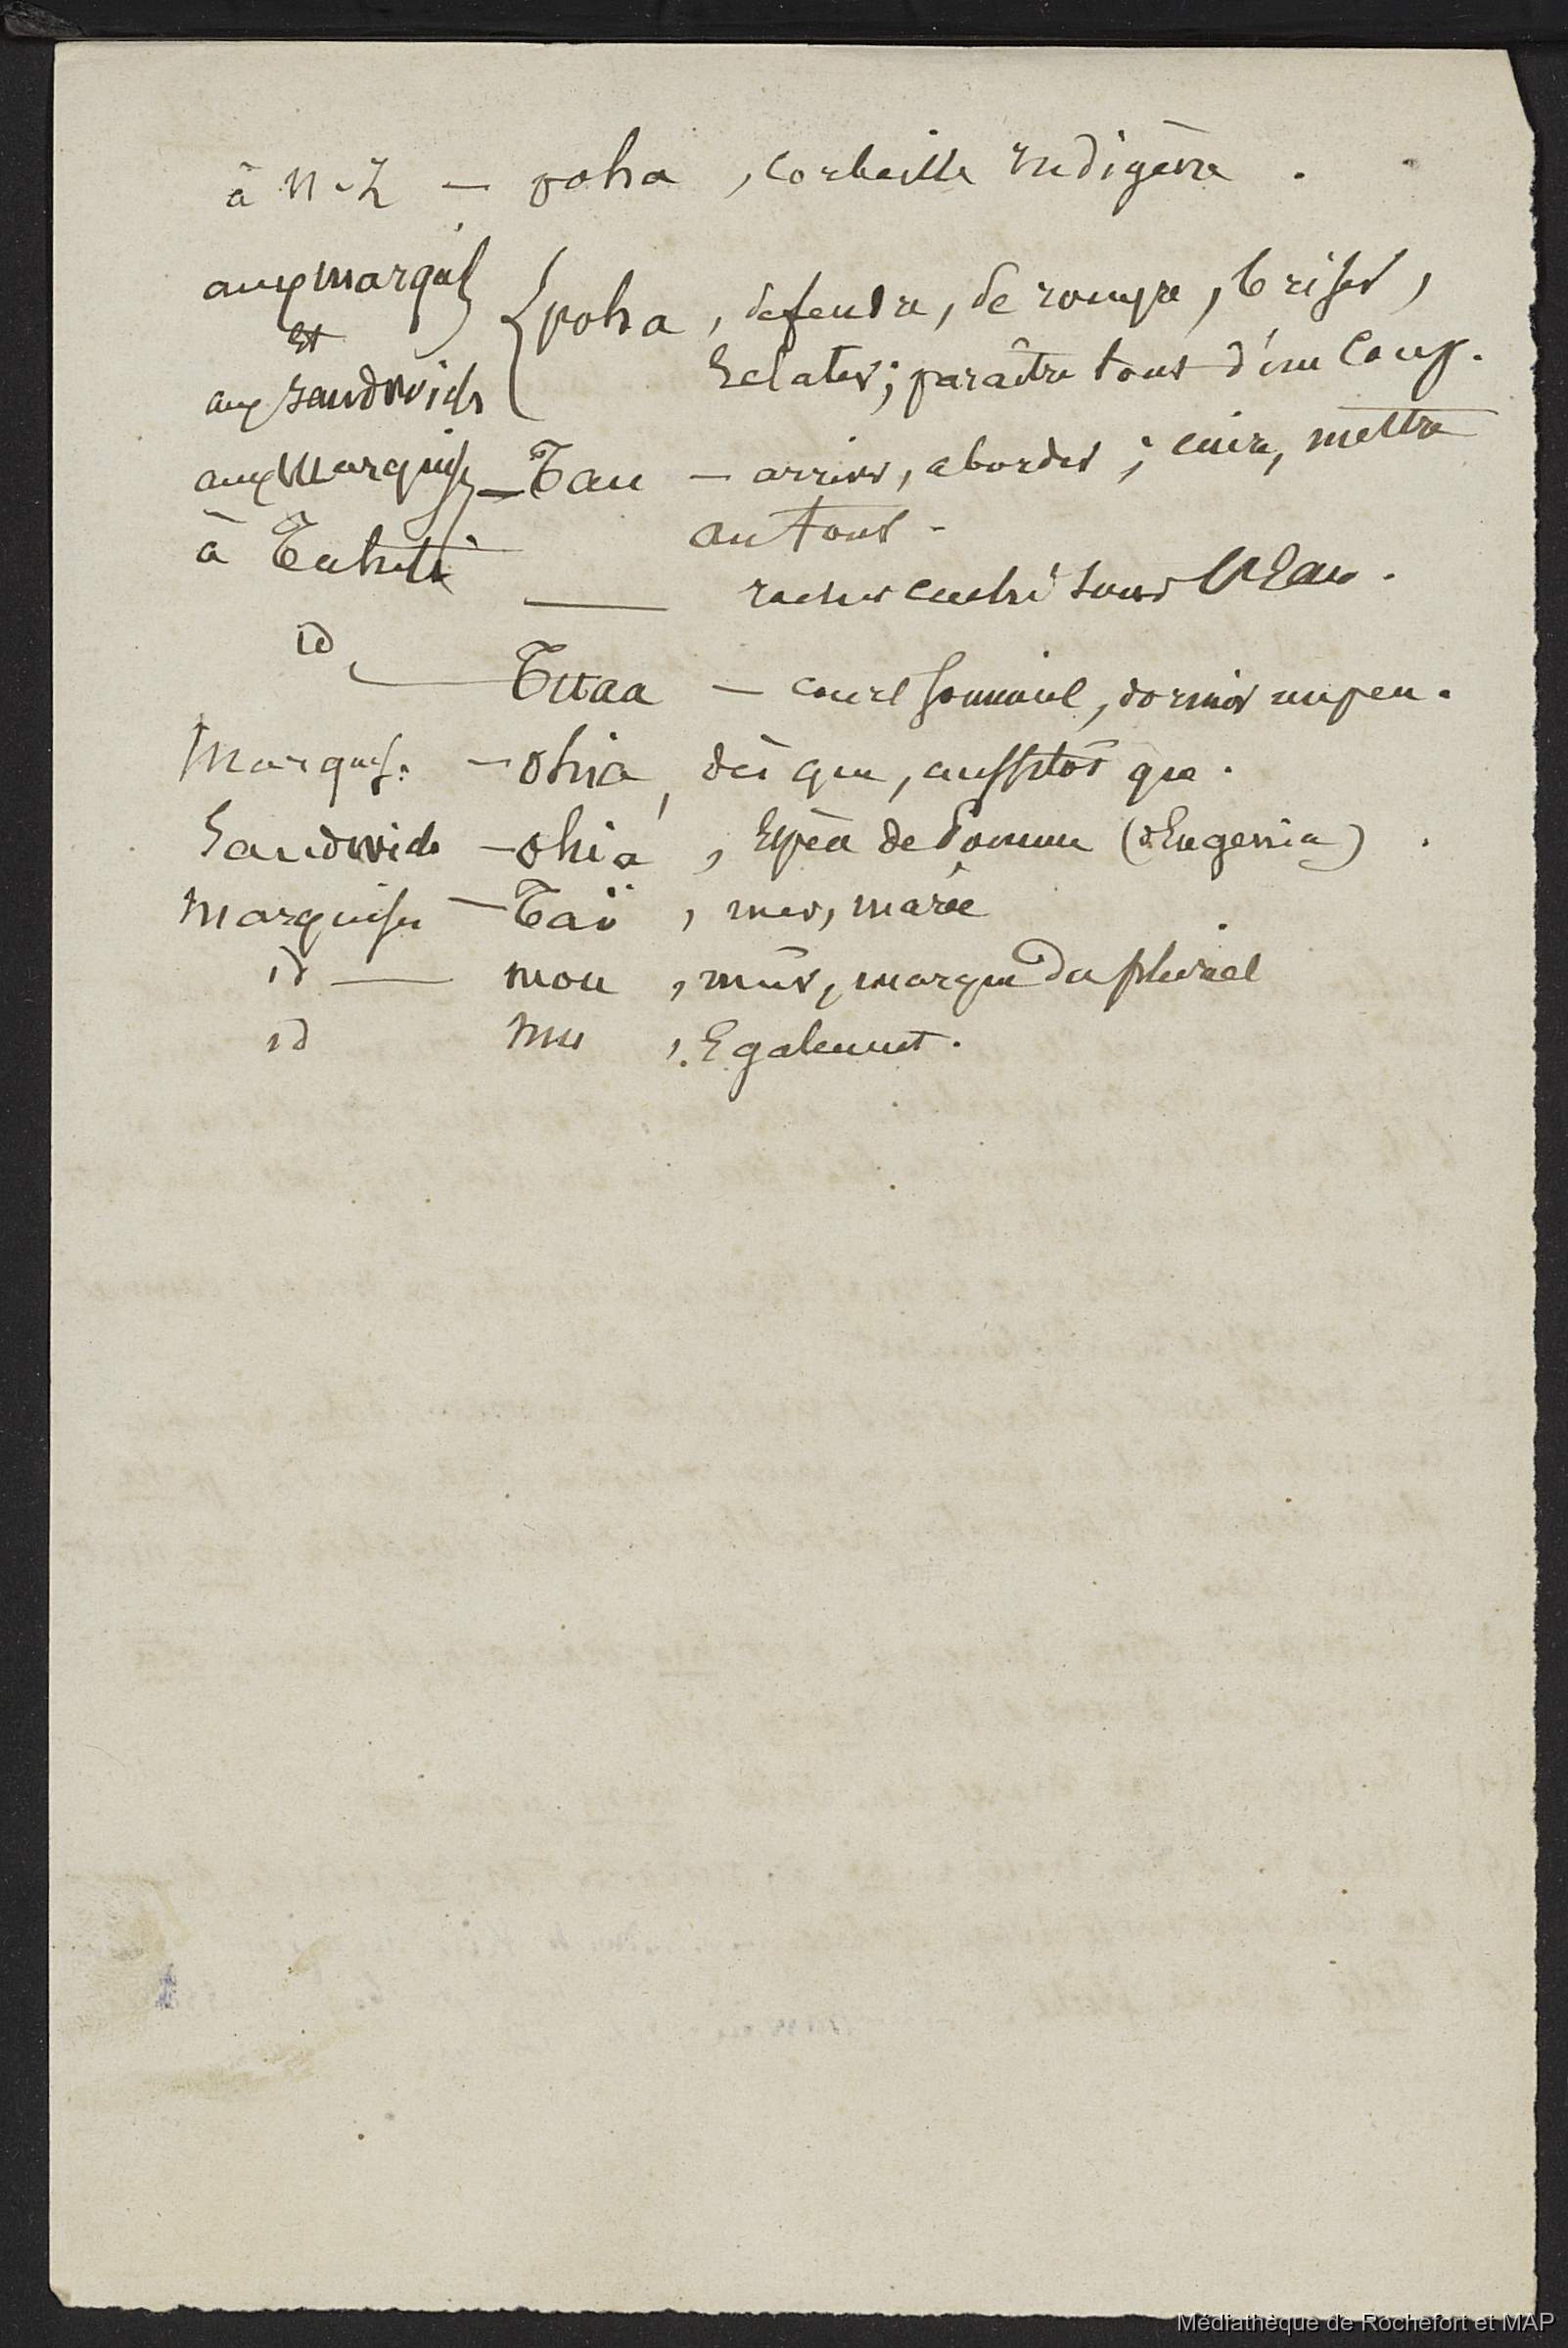 à N-Z — poha, corbeille indigène.
aux marquis
et
aux sandwichs
{ poha, se fendre, se rompre, briser,
Eclater; paraître tout d'un coup.
aux Marquises — Tau — arriver, aborder; cuire, mettre
au four -
à Tahiti — rocher caché sous l'Eau.
id — Tutaa — court sommeil, dormir un peu.
Marquis. — ohia, dès que, aussitôt que.
Sandwich — ohia, Espèce de Pomme (d'Eugenia).
Marquises — Taï, mer, marée
id — mou, mûr, marque du pluriel
id mu, Egalement.
Médiathèque de Rochefort et MAP